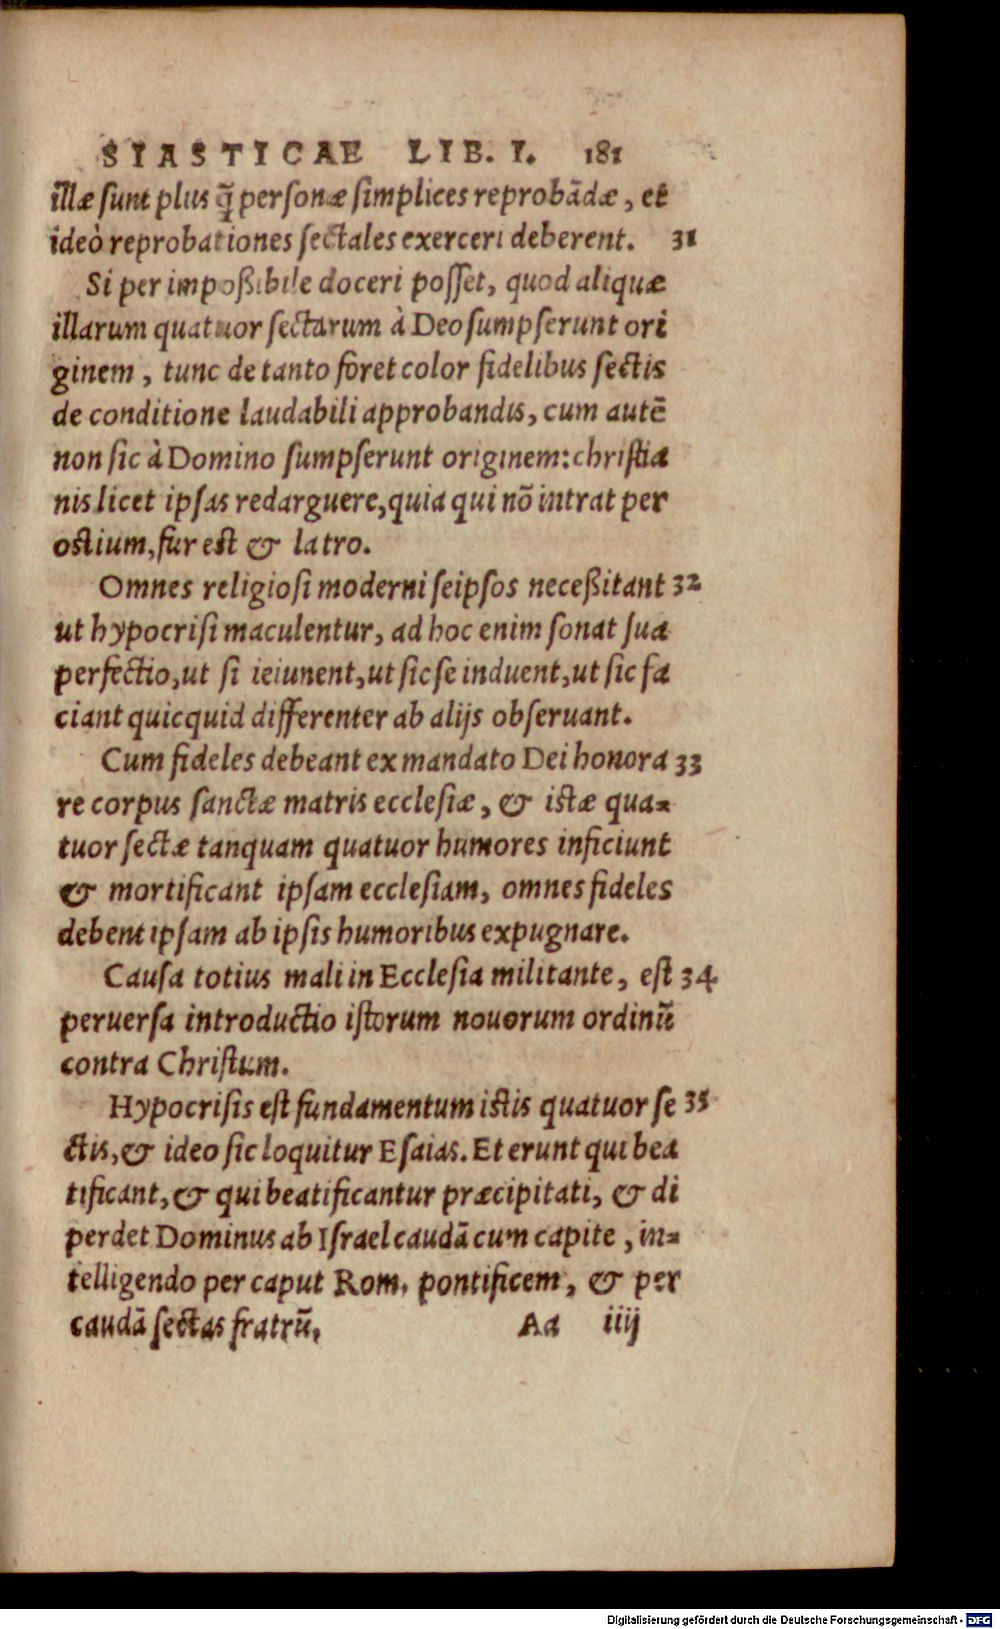 SIASTICAE LIB. I. 181
illæ sunt plus q̃ personæ simplices reprobãdæ, et
ideò reprobationes sectales exerceri deberent. 31
Si per impoßibile doceri posset, quod aliquæ
illarum quatuor sectarum à Deo sumpserunt ori
ginem, tunc de tanto foret color fidelibus sectis
de conditione laudabili approbandis, cum autẽ
non sic à Domino sumpserunt originem: christia
nis licet ipsas redarguere, quia qui nõ intrat per
ostium, fur est & latro.
Omnes religiosi moderni seipsos neceßitant 32
ut hypocrisi maculentur, ad hoc enim sonat sua
perfectio, ut si ieiunent, ut sic se induent, ut sic fa
ciant quicquid differenter ab alijs obseruant.
Cum fideles debeant ex mandato Dei honora 33
re corpus sanctæ matris ecclesiæ, & istæ qua-
tuor sectæ tanquam quatuor humores inficiunt
& mortificant ipsam ecclesiam, omnes fideles
debent ipsam ab ipsis humoribus expugnare.
Causa totius mali in Ecclesia militante, est 34
peruersa introductio istorum nouorum ordinũ
contra Christum.
Hypocrisis est fundamentum istis quatuor se 35
ctis, & ideo sic loquitur Esaias. Et erunt qui bea
tificant, & qui beatificantur præcipitati, & di
perdet Dominus ab Israel caudã cum capite, in-
telligendo per caput Rom. pontificem, & per
caudã sectas fratrũ, Aa iiij
Digitalisierung gefördert durch die Deutsche Forschungsgemeinschaft - DFG